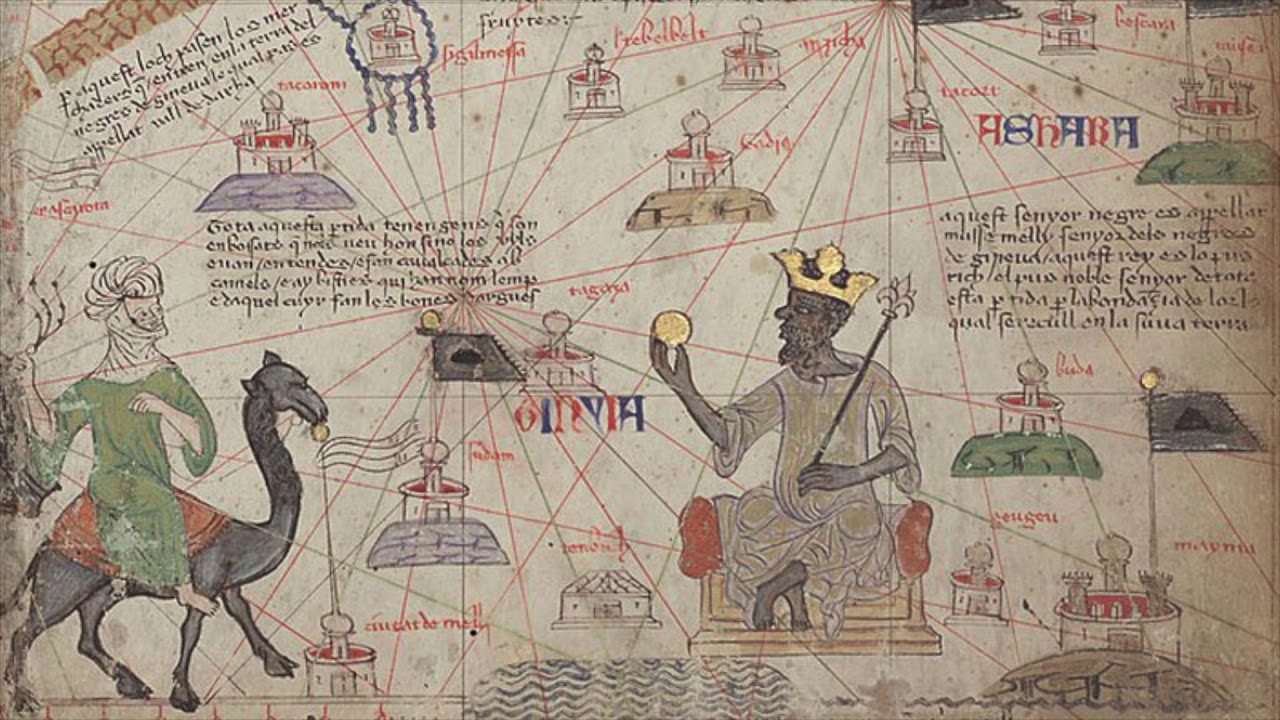 p aquest loch pasen los mer
chaders q entren en la terra del
negres de gineua lo qual pas es
appellat vall de darha
sigilmessa
tebelbelt
tacort
tacaram
ASHARA
buda
Tota aquesta ptida tenen gens q son
enbosats q nols veu hom sino los uyls
e uan en tendes e fan caualcades ab
camels e ay bisties qui han nom lemp
e daquel cuyr fan les bones dargues
aquest senyor negre es appellat
musse melly senyor dels negres
de gineua aquest rey es lo pus
rich el pus noble senyor de tota
esta ptida p labondazia de lor
qual se recull en la suua terra
tagaza
GINYIA
sudam
tenbuch
geugeu
mayma
ciutat de melly